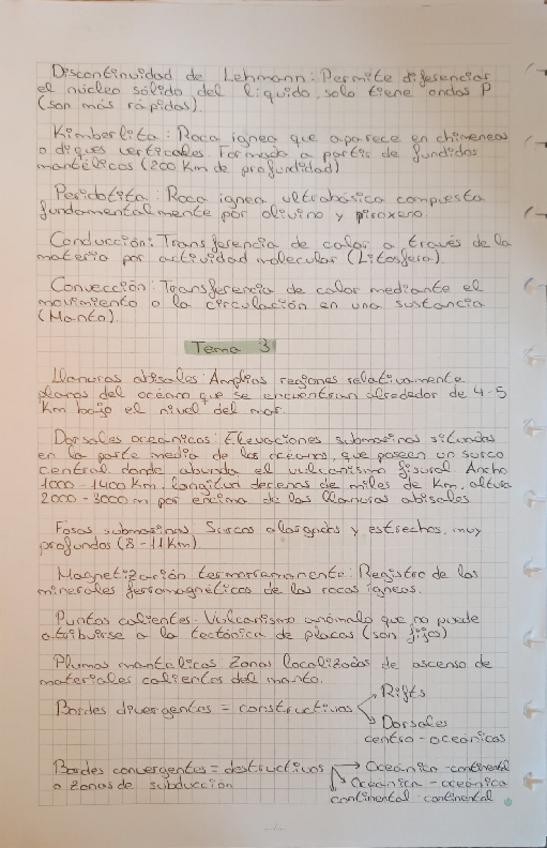 Discontinuidad de Lehmann: Permite diferenciar
el núcleo sólido del líquido, solo tiene ondas P
(son más rápidas).
Kimberlita: Roca ígnea que aparece en chimeneas
o diques verticales. Formada a partir de fundidos
mantélicos (200 Km de profundidad)
Peridotita: Roca ígnea ultrabásica compuesta
fundamentalmente por olivino y piroxeno.
Conducción: Transferencia de calor a través de la
materia por actividad molecular (Litosfera).
Convección: Transferencia de calor mediante el
movimiento o la circulación en una sustancia
(Manto).
Tema 3
Llanuras abisales: Amplias regiones relativamente
planas del océano que se encuentran alrededor de 4-5
Km bajo el nivel del mar.
Dorsales oceánicas: Elevaciones submarinas situadas
en la parte media de los océanos, que poseen un surco
central donde abunda el vulcanismo fisural. Ancho
1000-1400 Km, longitud decenas de miles de Km, altura
2000-3000 m por encima de las llanuras abisales
Fosas submarinas Surcos alargados y estrechos, muy
profundos (8-11 Km)
Magnetización termorremanente: Registro de los
minerales ferromagnéticos de las rocas ígneas.
Puntos calientes: Vulcanismo anómalo que no puede
atribuirse a la tectónica de placas (son fijo)
Plumas mantélicas Zonas localizadas de ascenso de
materiales calientes del manto.
Bordes divergentes = constructivos
Rifts
Dorsales
centro-oceánicas
Bordes convergentes = destructivos
o zonas de subducción
Oceánica-continental
Oceánica-oceánica
continental-continental